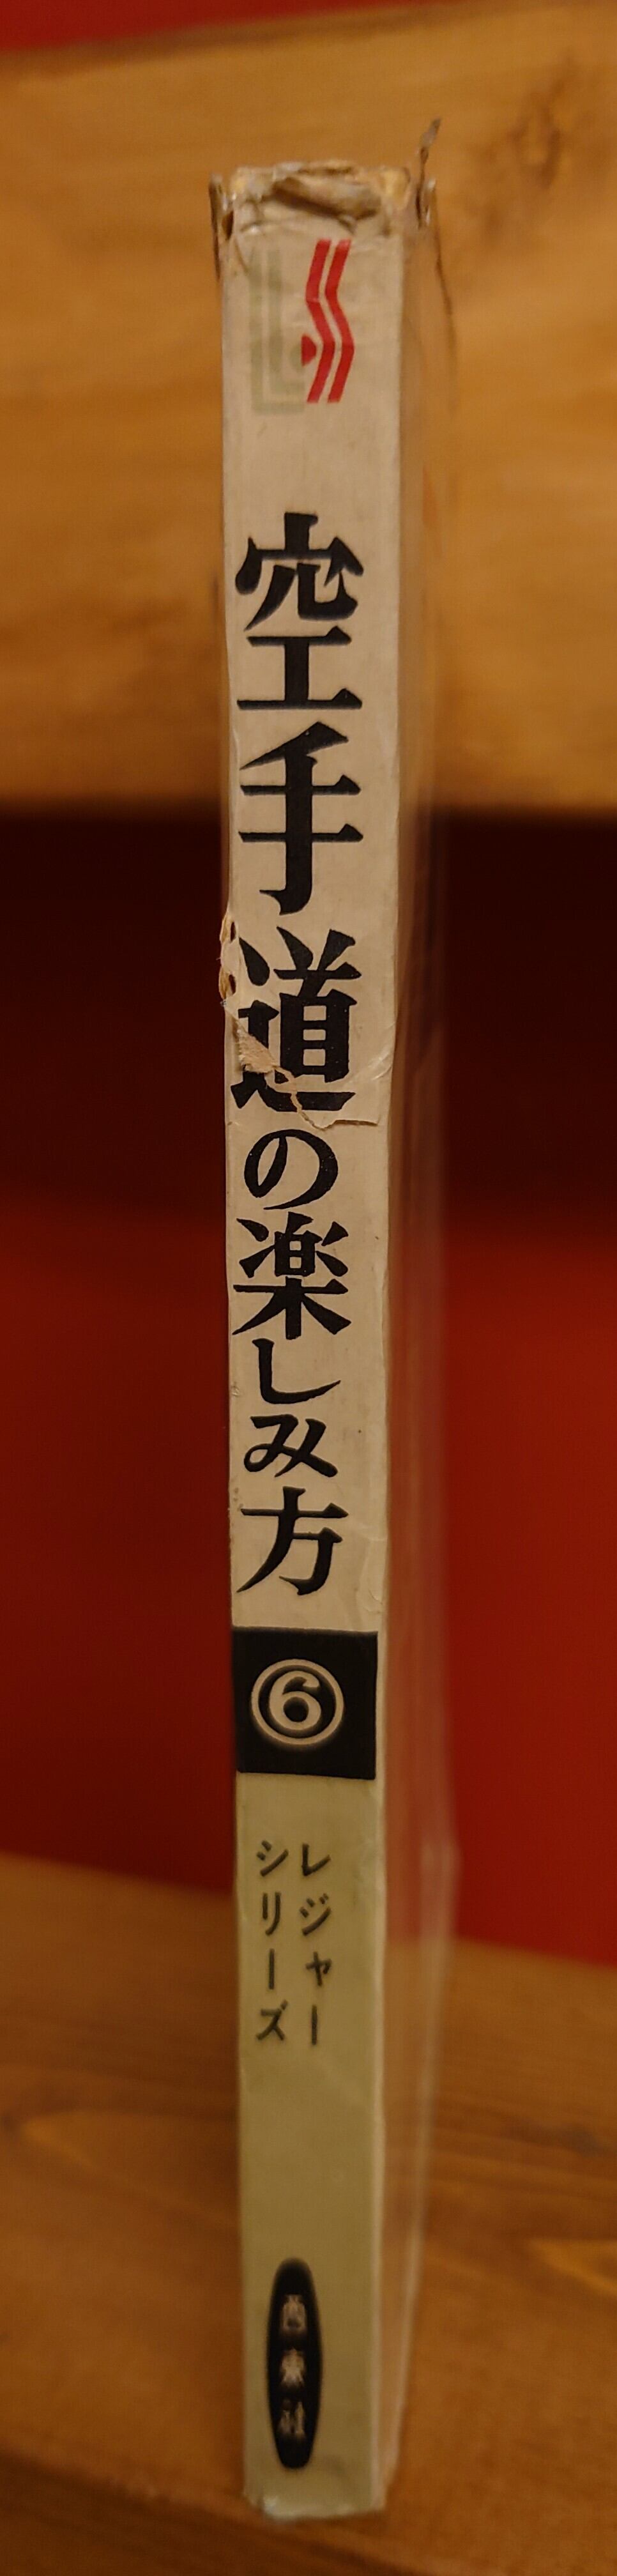 LS
空手道の楽しみ方
⑥
レジャー
シリーズ
西東社